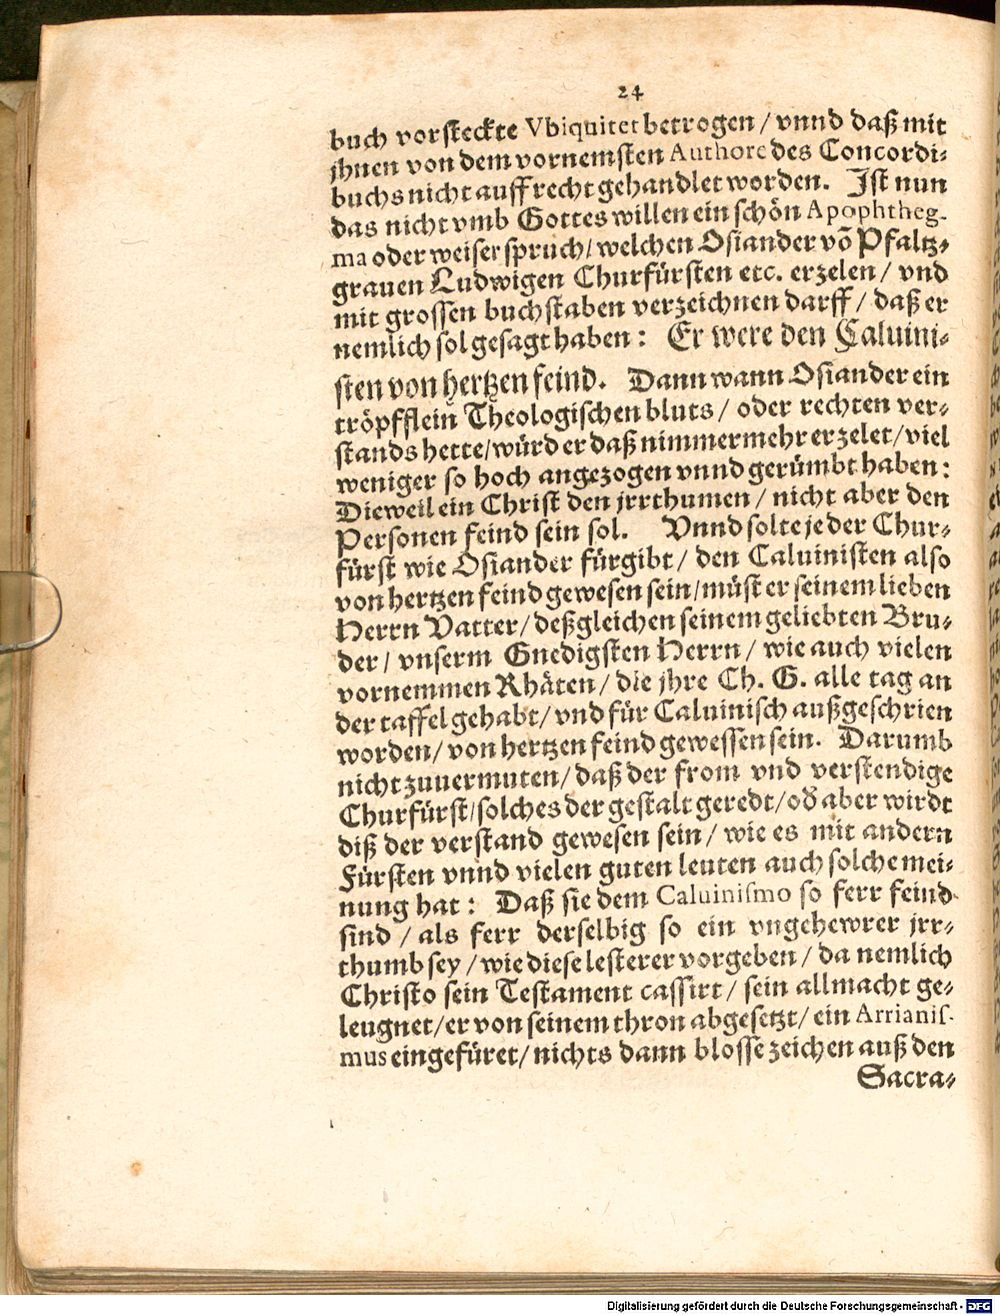 24
buch vorsteckte Vbiquitet betrogen / vnnd daß mit
jhnen von dem vornemsten Authore des Concordi⸗
buchs nicht auffrecht gehandlet worden. Jst nun
das nicht vmb Gottes willen ein schön Apophtheg-
ma oder weiser spruch / welchen Osiander võ Pfaltz⸗
grauen Ludwigen Churfürsten etc. erzelen / vnd
mit grossen buchstaben verzeichnen darff / daß er
nemlich sol gesagt haben: Er were den Caluini⸗
sten von hertzen feind. Dann wann Osiander ein
tröpfflein Theologischen bluts / oder rechten ver⸗
stands hette / würd er daß nimmermehr erzelet / viel
weniger so hoch angezogen vnnd gerümbt haben:
Dieweil ein Christ den jrrthumen / nicht aber den
Personen feind sein sol. Vnnd solte je der Chur⸗
fürst wie Osiander fürgibt / den Caluinisten also
von hertzen feind gewesen sein / müst er seinem lieben
Herrn Vatter / deßgleichen seinem geliebten Bru⸗
der / vnserm Gnedigsten Herrn / wie auch vielen
vornemmen Rhäten / die jhre Ch. G. alle tag an
der taffel gehabt / vnd für Caluinisch außgeschrien
worden / von hertzen feind gewessen sein. Darumb
nicht zuuermuten / daß der from vnd verstendige
Churfürst / solches der gestalt geredt / oď aber wirdt
diß der verstand gewesen sein / wie es mit andern
Fürsten vnnd vielen guten leuten auch solche mei⸗
nung hat: Daß sie dem Caluinismo so ferr feind
sind / als ferr derselbig so ein vngehewrer jrr⸗
thumb sey / wie diese lesterer vorgeben / da nemlich
Christo sein Testament cassirt / sein allmacht ge⸗
leugnet / er von seinem thron abgesetzt / ein Arrianis-
mus eingefüret / nichts dann blosse zeichen auß den
Sacra⸗
Digitalisierung gefördert durch die Deutsche Forschungsgemeinschaft - DFG